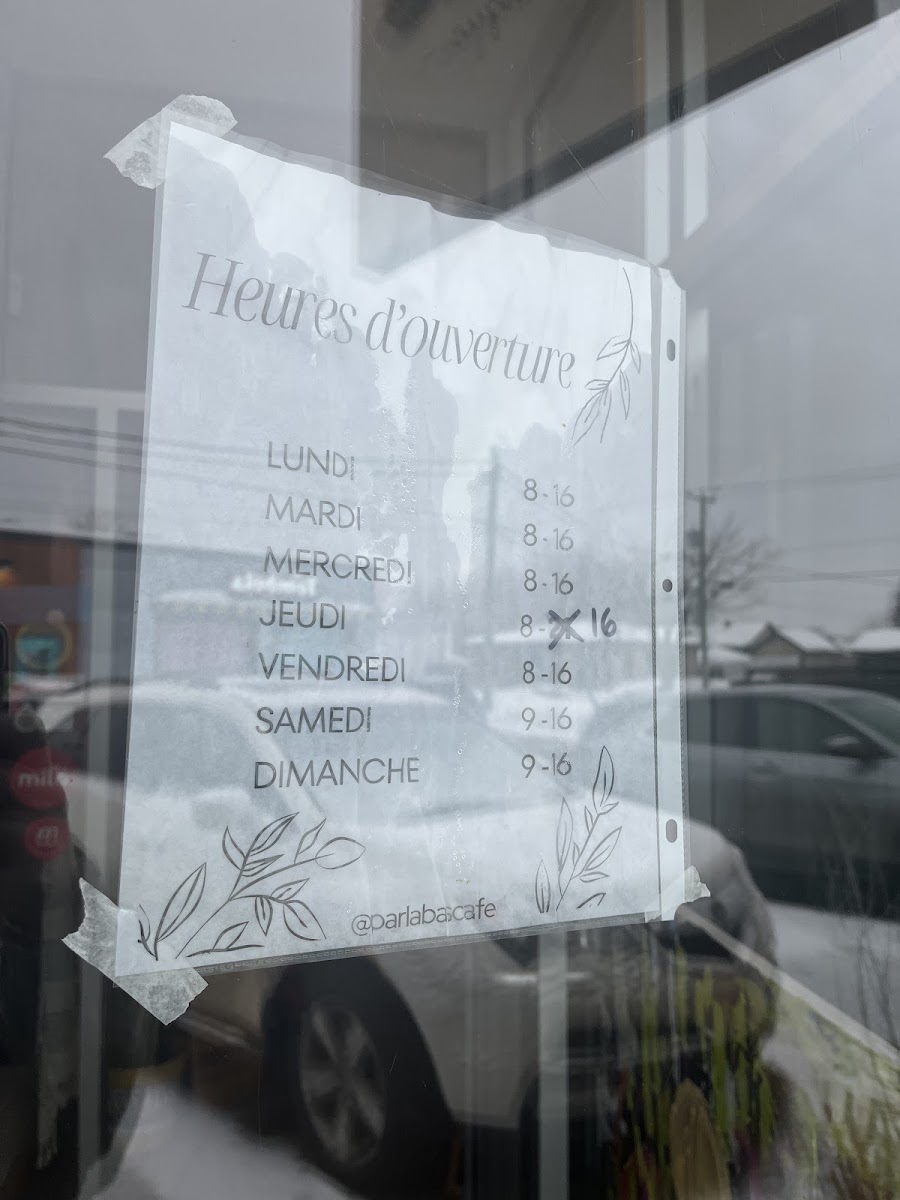 Heures d'ouverture
LUNDI 8-16
MARDI 8-16
MERCREDI 8-16
JEUDI 8- 16
VENDREDI 8-16
SAMEDI 9-16
DIMANCHE 9-16
@parlabascafe
m